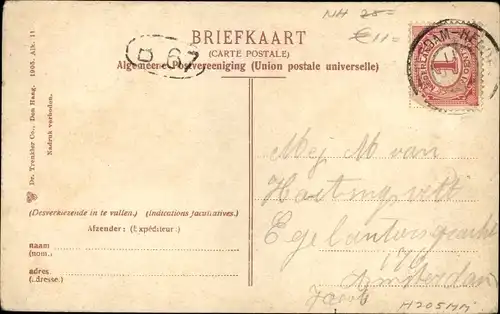 NH 25=
€11=
BRIEFKAART
(CARTE POSTALE)
Algemeene Postvereeniging (Union postale universelle)
B 67
NEDERLAND
1
Dr. Trenkler Co., Den Haag. 1905. Alb. 11
Nadruk verboden.
Mej M van
(Desverkiezende in te vullen.) (Indications facultatives.)
Afzender: (Expéditeur:)
naam
(nom.)
adres
(adresse.)
Egelantiersgracht
Amsterdam
Jacob
H205MM